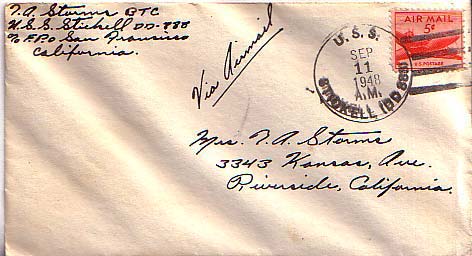 T.A. Storms BTC
U.S.S. Stickell DD-888
% F.P.O San Francisco
California.
Via Airmail
U.S.S.
SEP
11
1948
A.M.
STICKELL (DD 888)
AIR MAIL
5¢
U.S. POSTAGE
Mrs. T.A. Storms
3343 Kansas, Ave.
Riverside, California.